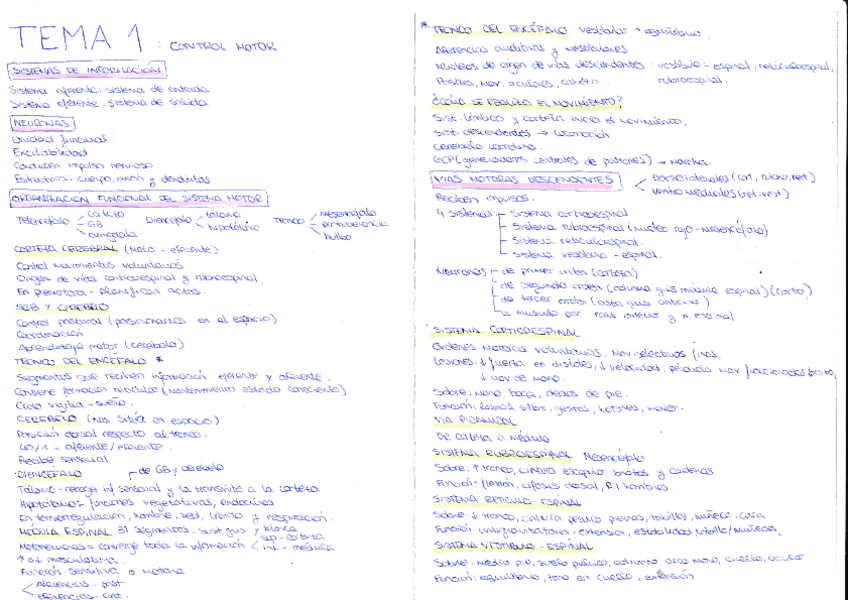 TEMA 1 : CONTROL MOTOR
SISTEMAS DE INFORMACIÓN
Sistema aferente: sistema de entrada
Sistema eferente: sistema de salida
NEURONAS
Unidad funcional
Excitabilidad
Conducen impulso nervioso
Estructura: cuerpo, axón y dendritas
ORGANIZACIÓN FUNCIONAL DEL SISTEMA MOTOR
Telencéfalo corteza Diencéfalo tálamo Tronco mesencéfalo
GB hipotálamo protuberancia
amígdala bulbo
CORTEZA CEREBRAL (motor - eferente)
Control movimientos voluntarios
Origen de vías corticoespinal y rubroespinal.
planifican actos.
Y CEREBELO
Control postural (posicionarnos en el espacio)
Coordinación
Aprendizaje motor (cerebelo)
TRONCO DEL ENCÉFALO *
Segmentos que reciben información eferente y aferente.
Contiene formación reticular (mantenimiento estado consciente)
Ciclo vigilia - sueño.
CEREBELO (nos sitúa en espacio)
Posición dorsal respecto al tronco.
40/1 = aferente/eferente.
Recibe sensorial
DIENCÉFALO de GB y cerebelo
Tálamo - recoge inf sensorial y la transmite a la corteza
Hipotálamo = funciones vegetativas, endocrinas
En termorregulación, hambre, sed, libido y respiración.
MÉDULA ESPINAL 31 segmentos, sust gris blanca
Motoneuronas = converge toda la información
musculatura.
Función sensitiva o motora
Aferencias - post
Eferencias - ant.
* TRONCO DEL ENCÉFALO vestibular equilibrio
Aferencias auditivas y vestibulares
Núcleos de origen de vías descendentes: vestíbulo-espinal, reticuloespinal,
Postura, mov. oculares, rubroespinal.
¿CÓMO SE REALIZA EL MOVIMIENTO?
Sist. límbico y corteza inicia el movimiento.
Sist. descendentes → locomoción
Cerebelo coordina.
GCP (generadores centrales de patrones) → marcha.
VÍAS MOTORAS DESCENDENTES Dorsolaterales (cort, rubro, ret)
Ventromediales (ret, vest)
Reciben impulsos.
4 sistemas: Sistema corticoespinal
Sistema rubroespinal (núcleo rojo - mesencéfalo)
Sistema reticuloespinal.
Sistema vestíbulo - espinal.
Neuronas de primer orden (corteza)
de segundo orden (columna gris médula espinal) (corto)
de tercer orden (asta gris anterior)
a músculo por raíz anterior y n. espinal
SISTEMA CORTICOESPINAL
Órdenes motoras voluntarias. Mov. selectivos finos.
Lesiones: ↓ fuerza en distales, ↓ velocidad, pérdida mov fraccionados
↓ mov de mano.
Sobre: mano, boca, dedos de pie.
Función: silbar, gestos,
VÍA PIRAMIDAL
De corteza a médula
SISTEMA RUBROESPINAL Mesencéfalo
Sobre: ↑ tronco, cintura escapular brazos y caderas
Función: flexión, cifosis dorsal, R.I hombros
SISTEMA RETICULO-ESPINAL
Sobre: ↓ tronco, cintura pélvica piernas, tobillos, muñeca, cara
Función: antigravitatoria, extensión, estabilidad, tobillo/muñeca.
SISTEMA VESTIBULO - ESPINAL
Sobre: medio pie, suelo pélvico, columna, arco mano, cuello, ocular
Función: equilibrio, tono en cuello, extensión